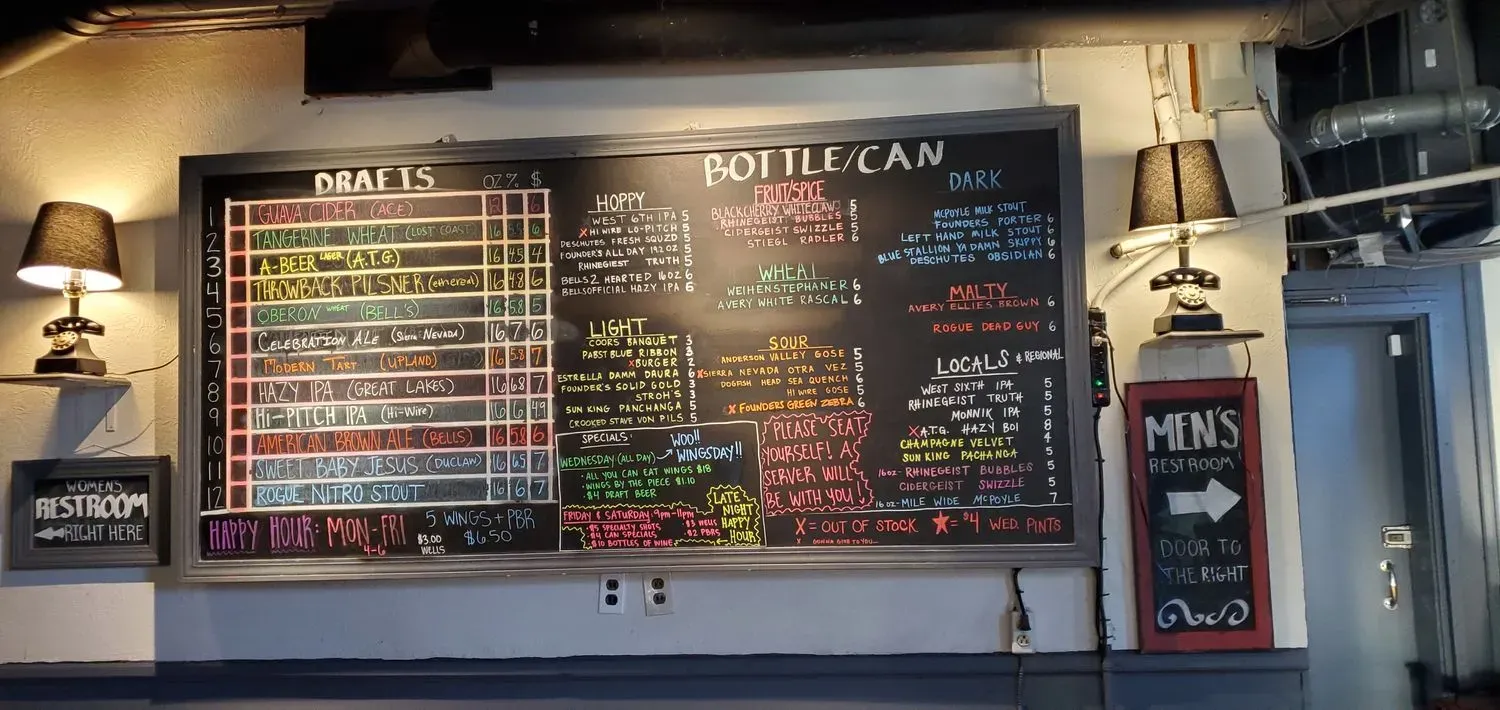 DRAFTS OZ % $
1 GUAVA CIDER (ACE) 6
2 TANGERINE WHEAT (LOST COAST) 16 5.5 6
3 A-BEER LAGER (A.T.G.) 16 4.5 4
4 THROWBACK PILSNER (ethereal) 16 4.8 6
5 OBERON WHEAT (BELL'S) 16 5.8 5
6 CELEBRATION ALE (Sierra NEVADA) 16 7 6
7 MODERN TART (UPLAND) 16 5.8 7
8 HAZY IPA (GREAT LAKES) 16 6.8 7
9 Hi-PITCH IPA (Hi-Wire) 16 6
10 AMERICAN BROWN ALE (BELLS) 16 5.8 6
11 SWEET BABY JESUS (DUCLAW) 16 6.5 7
12 ROGUE NITRO STOUT 16 6 7
HAPPY HOUR: MON-FRI
4-6
$3.00
WELLS
5 WINGS + PBR
$6.50
BOTTLE/CAN
HOPPY
WEST 6TH IPA 5
X HI WIRE LO-PITCH 5
DESCHUTES FRESH SQUZD 5
FOUNDER'S ALL DAY 19.2 OZ 5
RHINEGIEST TRUTH 5
BELLS 2 HEARTED 16OZ 6
BELLS OFFICIAL HAZY IPA 6
LIGHT
COORS BANQUET 3
PABST BLUE RIBBON 3
X BURGER 2
ESTRELLA DAMM DAURA 6
FOUNDER'S SOLID GOLD 3
STROH'S 3
SUN KING PANCHANGA 5
CROOKED STAVE VON PILS 5
SPECIALS:
WEDNESDAY (ALL DAY) → WOO!!
WINGSDAY!!
· ALL YOU CAN EAT WINGS $18
· WINGS BY THE PIECE $1.10
· $4 DRAFT BEER
FRIDAY & SATURDAY: 9pm-11pm
· $5 SPECIALTY SHOTS
· $4 CAN SPECIALS
· $10 BOTTLES OF WINE
· $3 WELLS
· $2 PBRS
LATE
NIGHT
HAPPY
HOUR
FRUIT/SPICE
BLACKCHERRY WHITECLAW 5
RHINEGEIST BUBBLES 5
CIDERGEIST SWIZZLE 5
STIEGL RADLER 6
WHEAT
WEIHENSTEPHANER 6
AVERY WHITE RASCAL 6
SOUR
ANDERSON VALLEY GOSE 5
X SIERRA NEVADA OTRA VEZ 5
DOGFISH HEAD SEA QUENCH 6
HI WIRE GOSE 5
X FOUNDERS GREEN ZEBRA 6
PLEASE SEAT
YOURSELF! A
SERVER WILL
BE WITH YOU!
DARK
MCPOYLE MILK STOUT
FOUNDERS PORTER 6
LEFT HAND MILK STOUT 6
BLUE STALLION YA DAMN SKIPPY 6
DESCHUTES OBSIDIAN 6
MALTY
AVERY ELLIES BROWN 6
ROGUE DEAD GUY 6
LOCALS & REGIONAL
WEST SIXTH IPA 5
RHINEGEIST TRUTH 5
MONNIK IPA 5
X A.T.G. HAZY BOI 8
CHAMPAGNE VELVET 4
SUN KING PACHANGA 5
16oz- RHINEGEIST BUBBLES 5
CIDERGEIST SWIZZLE 5
16oz-MILE WIDE McPOYLE 7
X = OUT OF STOCK ★ = $4 WED. PINTS
X GONNA GIVE TO YOU
WOMENS
RESTROOM
RIGHT HERE
MEN'S
RESTROOM
DOOR TO
THE RIGHT